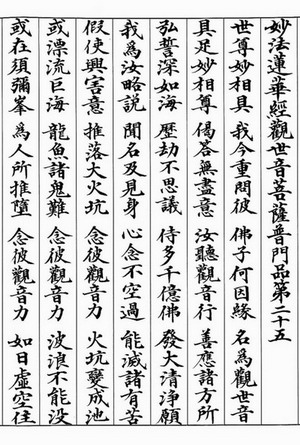 妙法蓮華經觀世音菩薩普門品第二十五
世尊妙相具 我今重問彼 佛子何因緣 名為觀世音
具足妙相尊 偈答無盡意 汝聽觀音行 善應諸方所
弘誓深如海 歷劫不思議 侍多千億佛 發大清淨願
我為汝略說 聞名及見身 心念不空過 能滅諸有苦
假使興害意 推落大火坑 念彼觀音力 火坑變成池
或漂流巨海 龍魚諸鬼難 念彼觀音力 波浪不能没
或在須彌峯 為人所推墮 念彼觀音力 如日虛空住